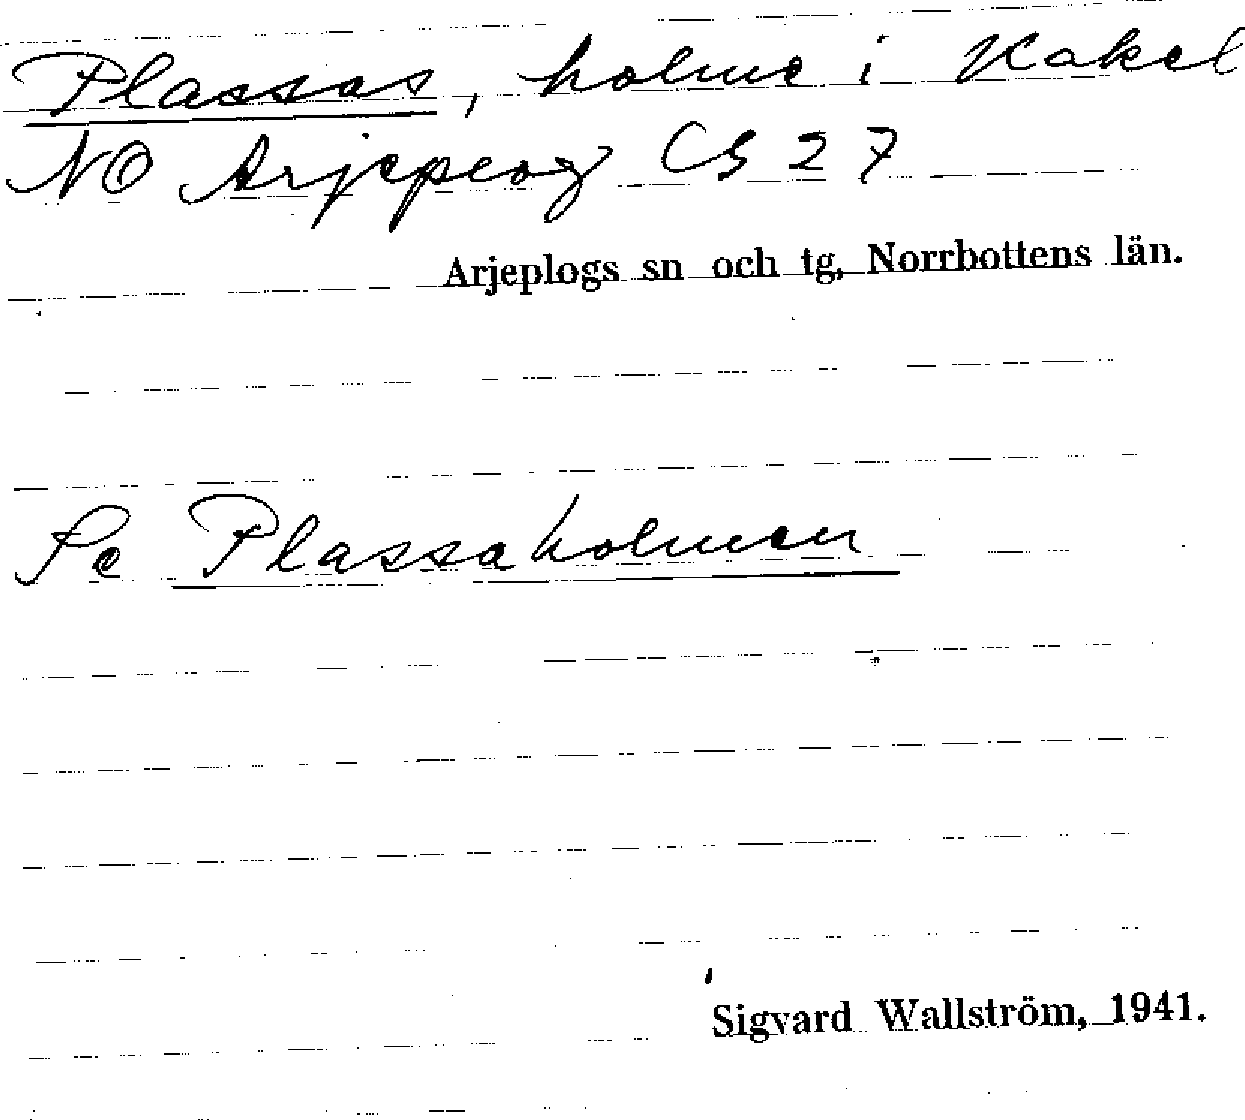 Plassas, holme i Kakel
NO Arjeplog CS 27
Arjeplogs sn och tg, Norrbottens län.
Se Plassaholmen
Sigvard Wallström, 1941.